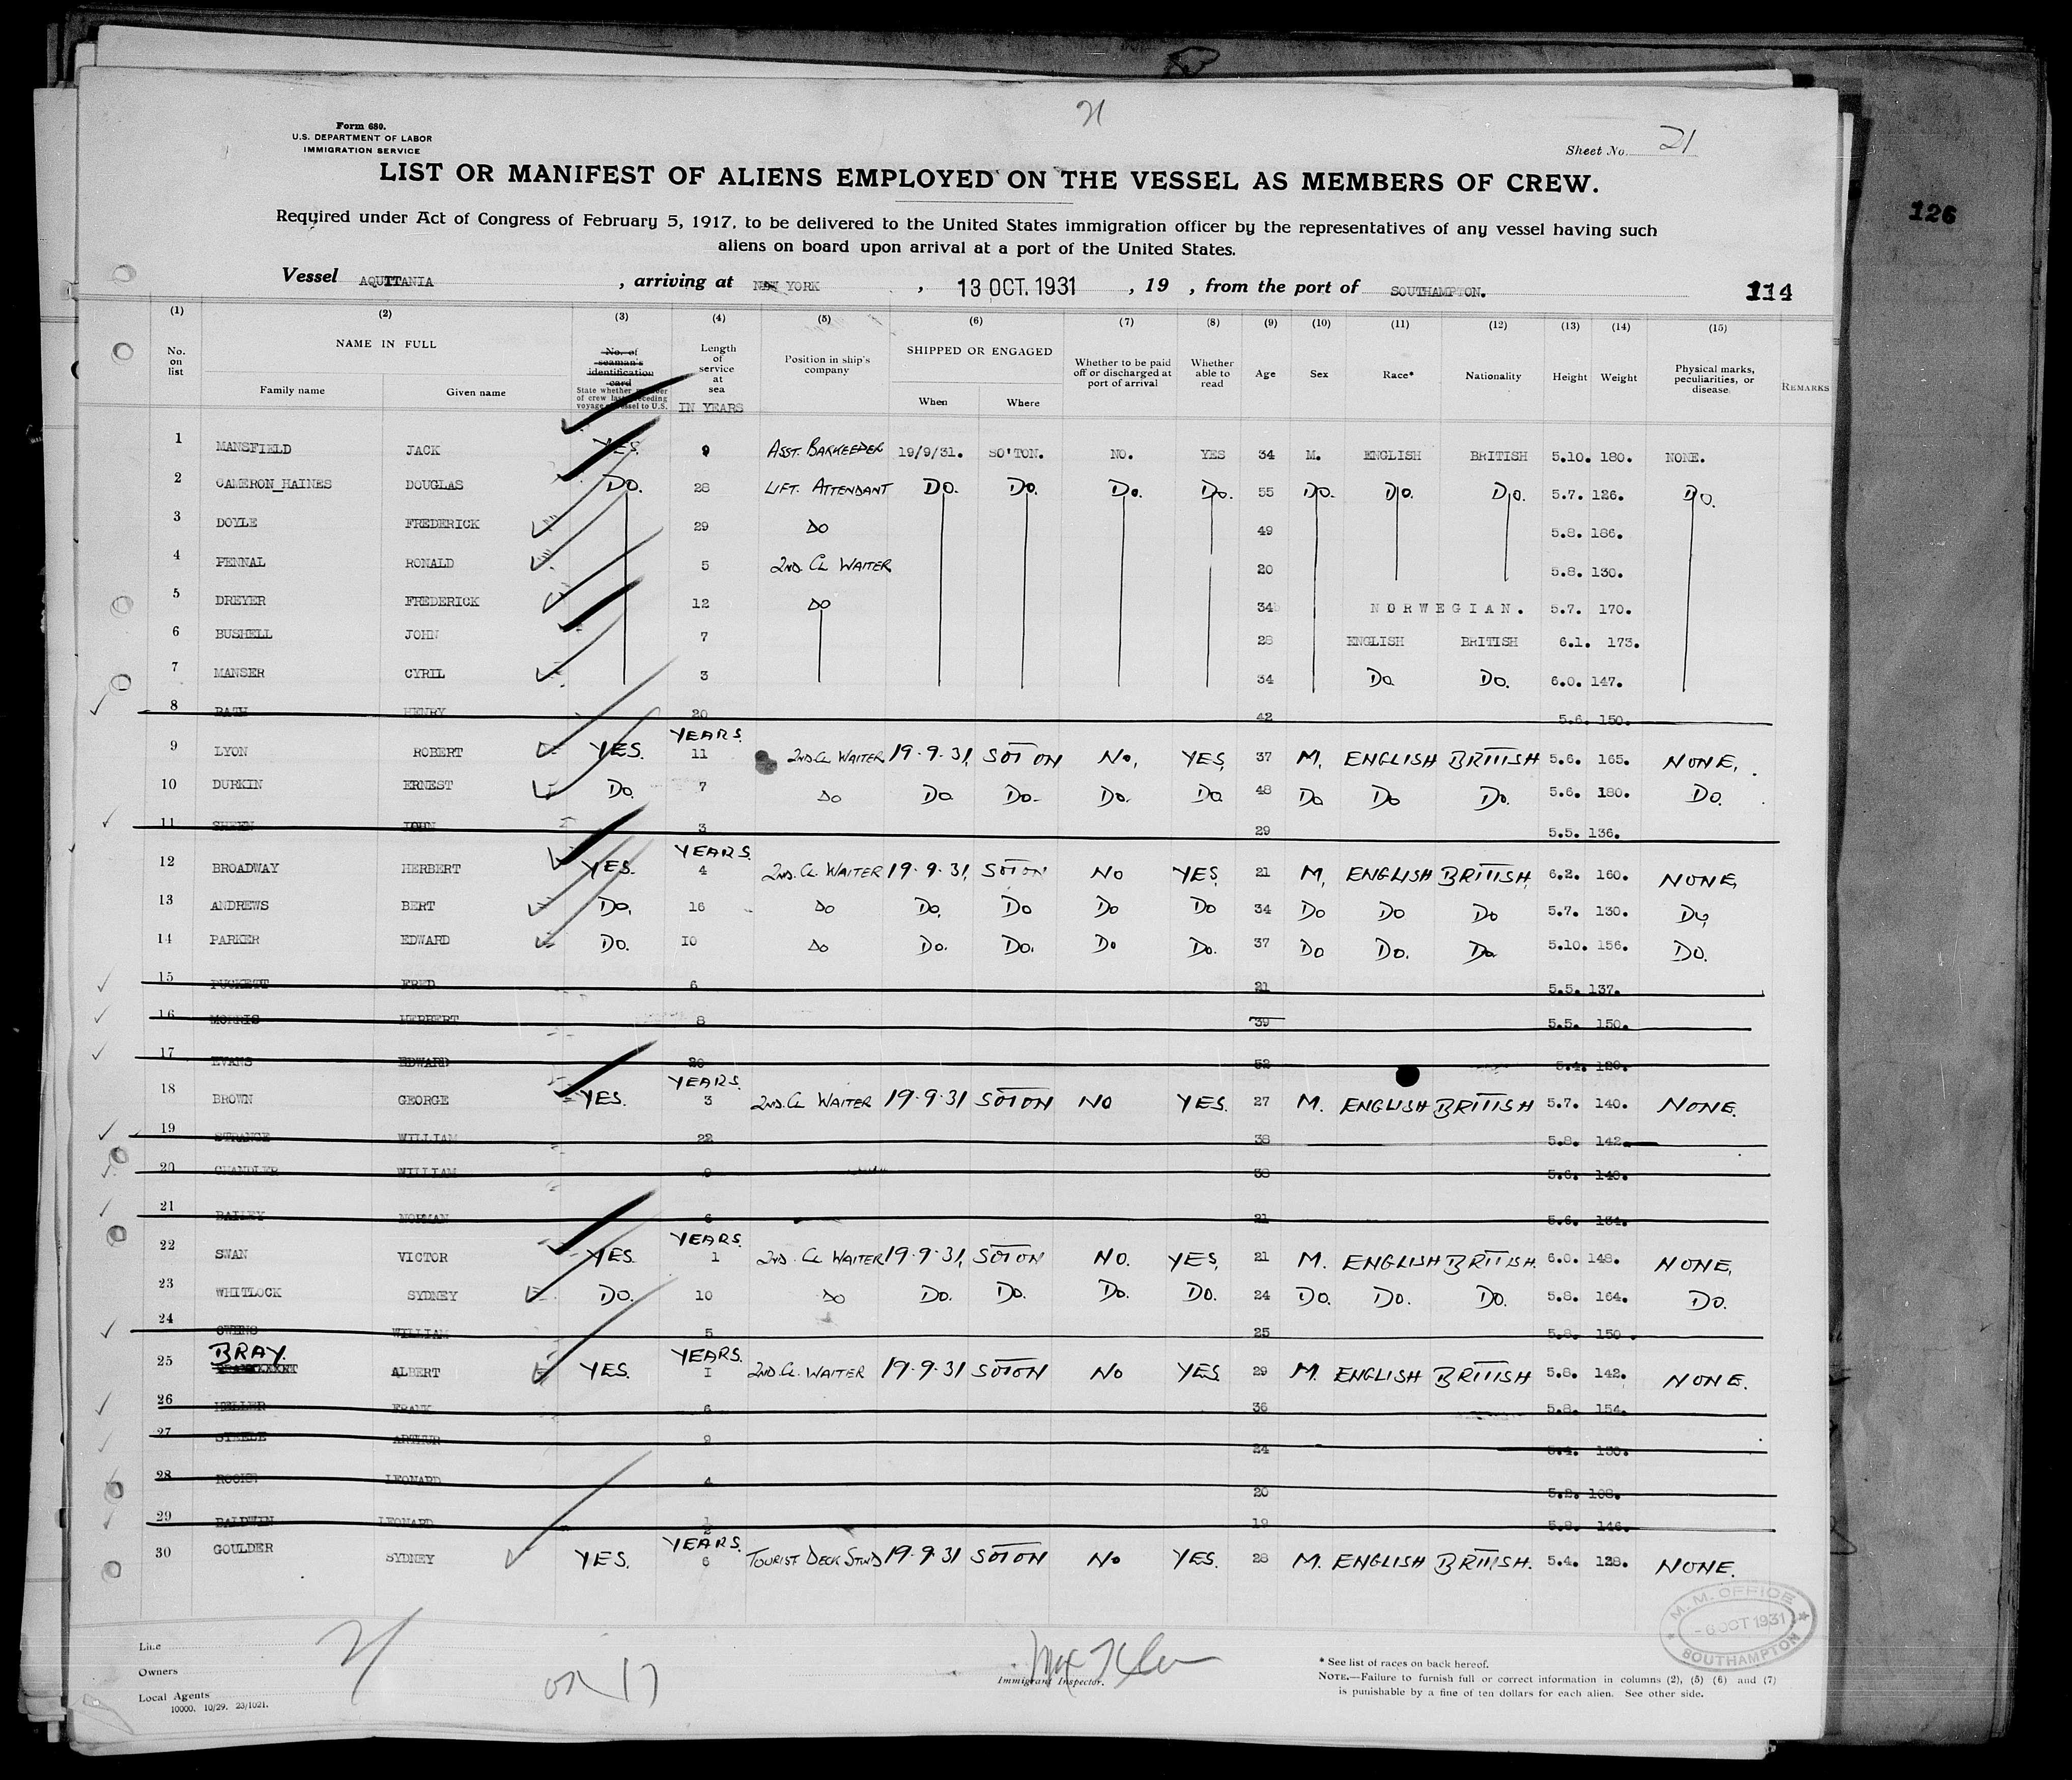 21
Form 680.
U.S. DEPARTMENT OF LABOR
IMMIGRATION SERVICE
Sheet No. 21
LIST OR MANIFEST OF ALIENS EMPLOYED ON THE VESSEL AS MEMBERS OF CREW.
Required under Act of Congress of February 5, 1917, to be delivered to the United States immigration officer by the representatives of any vessel having such
aliens on board upon arrival at a port of the United States.
126
Vessel AQUITANIA, arriving at NEW YORK, 13 OCT. 1931, 19 , from the port of SOUTHAMPTON. 114
(1) (2) (3) (4) (5) (6) (7) (8) (9) (10) (11) (12) (13) (14) (15)
No. on list
NAME IN FULL
Family name Given name
No. of seaman's identification card
State whether member of crew last preceding voyage of vessel to U.S.
Length of service at sea
IN YEARS
Position in ship's company
SHIPPED OR ENGAGED
When Where
Whether to be paid off or discharged at port of arrival
Whether able to read
Age Sex Race* Nationality Height Weight
Physical marks, peculiarities, or disease
REMARKS
1 MANSFIELD JACK YES. 9 ASST. BARKEEPER 19/9/31. SO'TON. NO. YES 34 M. ENGLISH BRITISH 5.10. 180. NONE.
2 CAMERON_HAINES DOUGLAS DO. 28 LIFT. ATTENDANT DO. DO. DO. DO. 55 DO. DO. DO. 5.7. 126. DO.
3 DOYLE FREDERICK 29 DO 49 5.8. 186.
4 PENNAL RONALD 5 2ND. CL WAITER 20 5.8. 130.
5 DREYER FREDERICK 12 DO 34 NORWEGIAN. 5.7. 170.
6 BUSHELL JOHN 7 28 ENGLISH BRITISH 6.1. 173.
7 MANSER CYRIL 3 34 DO DO. 6.0. 147.
8 BATH HENRY 20 42 5.6. 150.
YEARS.
9 LYON ROBERT YES. 11 2ND CL WAITER 19.9.31, SOTON NO, YES, 37 M, ENGLISH BRITISH 5.6. 165. NONE.
10 DURKIN ERNEST DO. 7 DO DO DO. DO. DO 48 DO DO DO. 5.6. 180. DO.
11 SHEEN JOHN 3 29 5.5. 136.
YEARS.
12 BROADWAY HERBERT YES. 4 2ND. CL WAITER 19.9.31, SOTON NO YES, 21 M, ENGLISH BRITISH, 6.2. 160. NONE,
13 ANDREWS BERT DO, 16 DO DO, DO DO DO 34 DO DO DO 5.7. 130. DO,
14 PARKER EDWARD DO. 10 DO DO. DO. DO DO. 37 DO DO. DO 5.10. 156. DO.
15 PUCKETT FRED 6 21 5.5. 137.
16 MORRIS HERBERT 8 39 5.5. 150.
17 EVANS EDWARD 20 52 5.4. 120.
YEARS.
18 BROWN GEORGE YES. 3 2ND. CL WAITER 19.9.31 SOTON NO YES. 27 M. ENGLISH BRITISH 5.7. 140. NONE.
19 STRANGE WILLIAM 22 38 5.8. 142
20 CHANDLER WILLIAM 9 38 5.6. 140.
21 BAILEY NORMAN 6 21 5.6. 134.
YEARS.
22 SWAN VICTOR YES. 1 2ND. CL WAITER 19.9.31, SOTON NO. YES, 21 M. ENGLISH BRITISH. 6.0. 148. NONE,
23 WHITLOCK SYDNEY DO. 10 DO DO. DO. DO. DO. 24 DO. DO. DO. 5.8. 164. DO.
24 OWENS WILLIAM 5 25 5.8. 150.
BRAY. YEARS.
25 ALBERT YES. I 2ND. CL. WAITER 19.9.31 SOTON NO YES 29 M. ENGLISH BRITISH 5.8. 142. NONE.
26 HELLER FRANK 6 36 5.8. 154.
27 STEELE ARTHUR 9 24 5.4. 130.
28 LEONARD 4 20 5.2. 108.
29 BALDWIN LEONARD 1/2 19 5.8. 146.
YEARS.
30 GOULDER SYDNEY YES. 6 TOURIST DECK STWD 19.9.31 SOTON NO YES. 28 M. ENGLISH BRITISH. 5.4. 128. NONE.
M. M. OFFICE
- 6 OCT 1931
SOUTHAMPTON
Line
Owners
Local Agents
10000. 10/29. 23/1021.
21
17
Immigrant Inspector.
* See list of races on back hereof.
NOTE.—Failure to furnish full or correct information in columns (2), (5) (6) and (7)
is punishable by a fine of ten dollars for each alien. See other side.